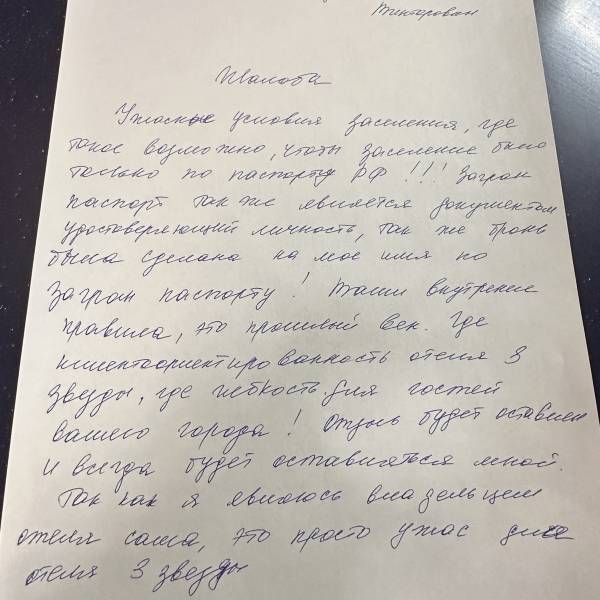 Жалоба
Ужасные условия заселения, где
такое возможно, чтобы заселение было
только по паспорту РФ !!! Загран
паспорт так же является документом
удостоверяющий личность, так же бронь
была сделана на мое имя по
загран паспорту! Ваши внутрение
правила, это прошлый век. Где
клиентоориентированность отеля 3
звезды, где гибкость для гостей
вашего города! Отзыв будет оставлен
и всегда будет оставляться мной.
Так как я являюсь владельцем
отеля сама, это просто ужас для
отеля 3 звезды